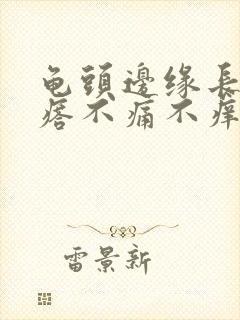 龟頭邊缘長
痞不痛不痒
雷景新